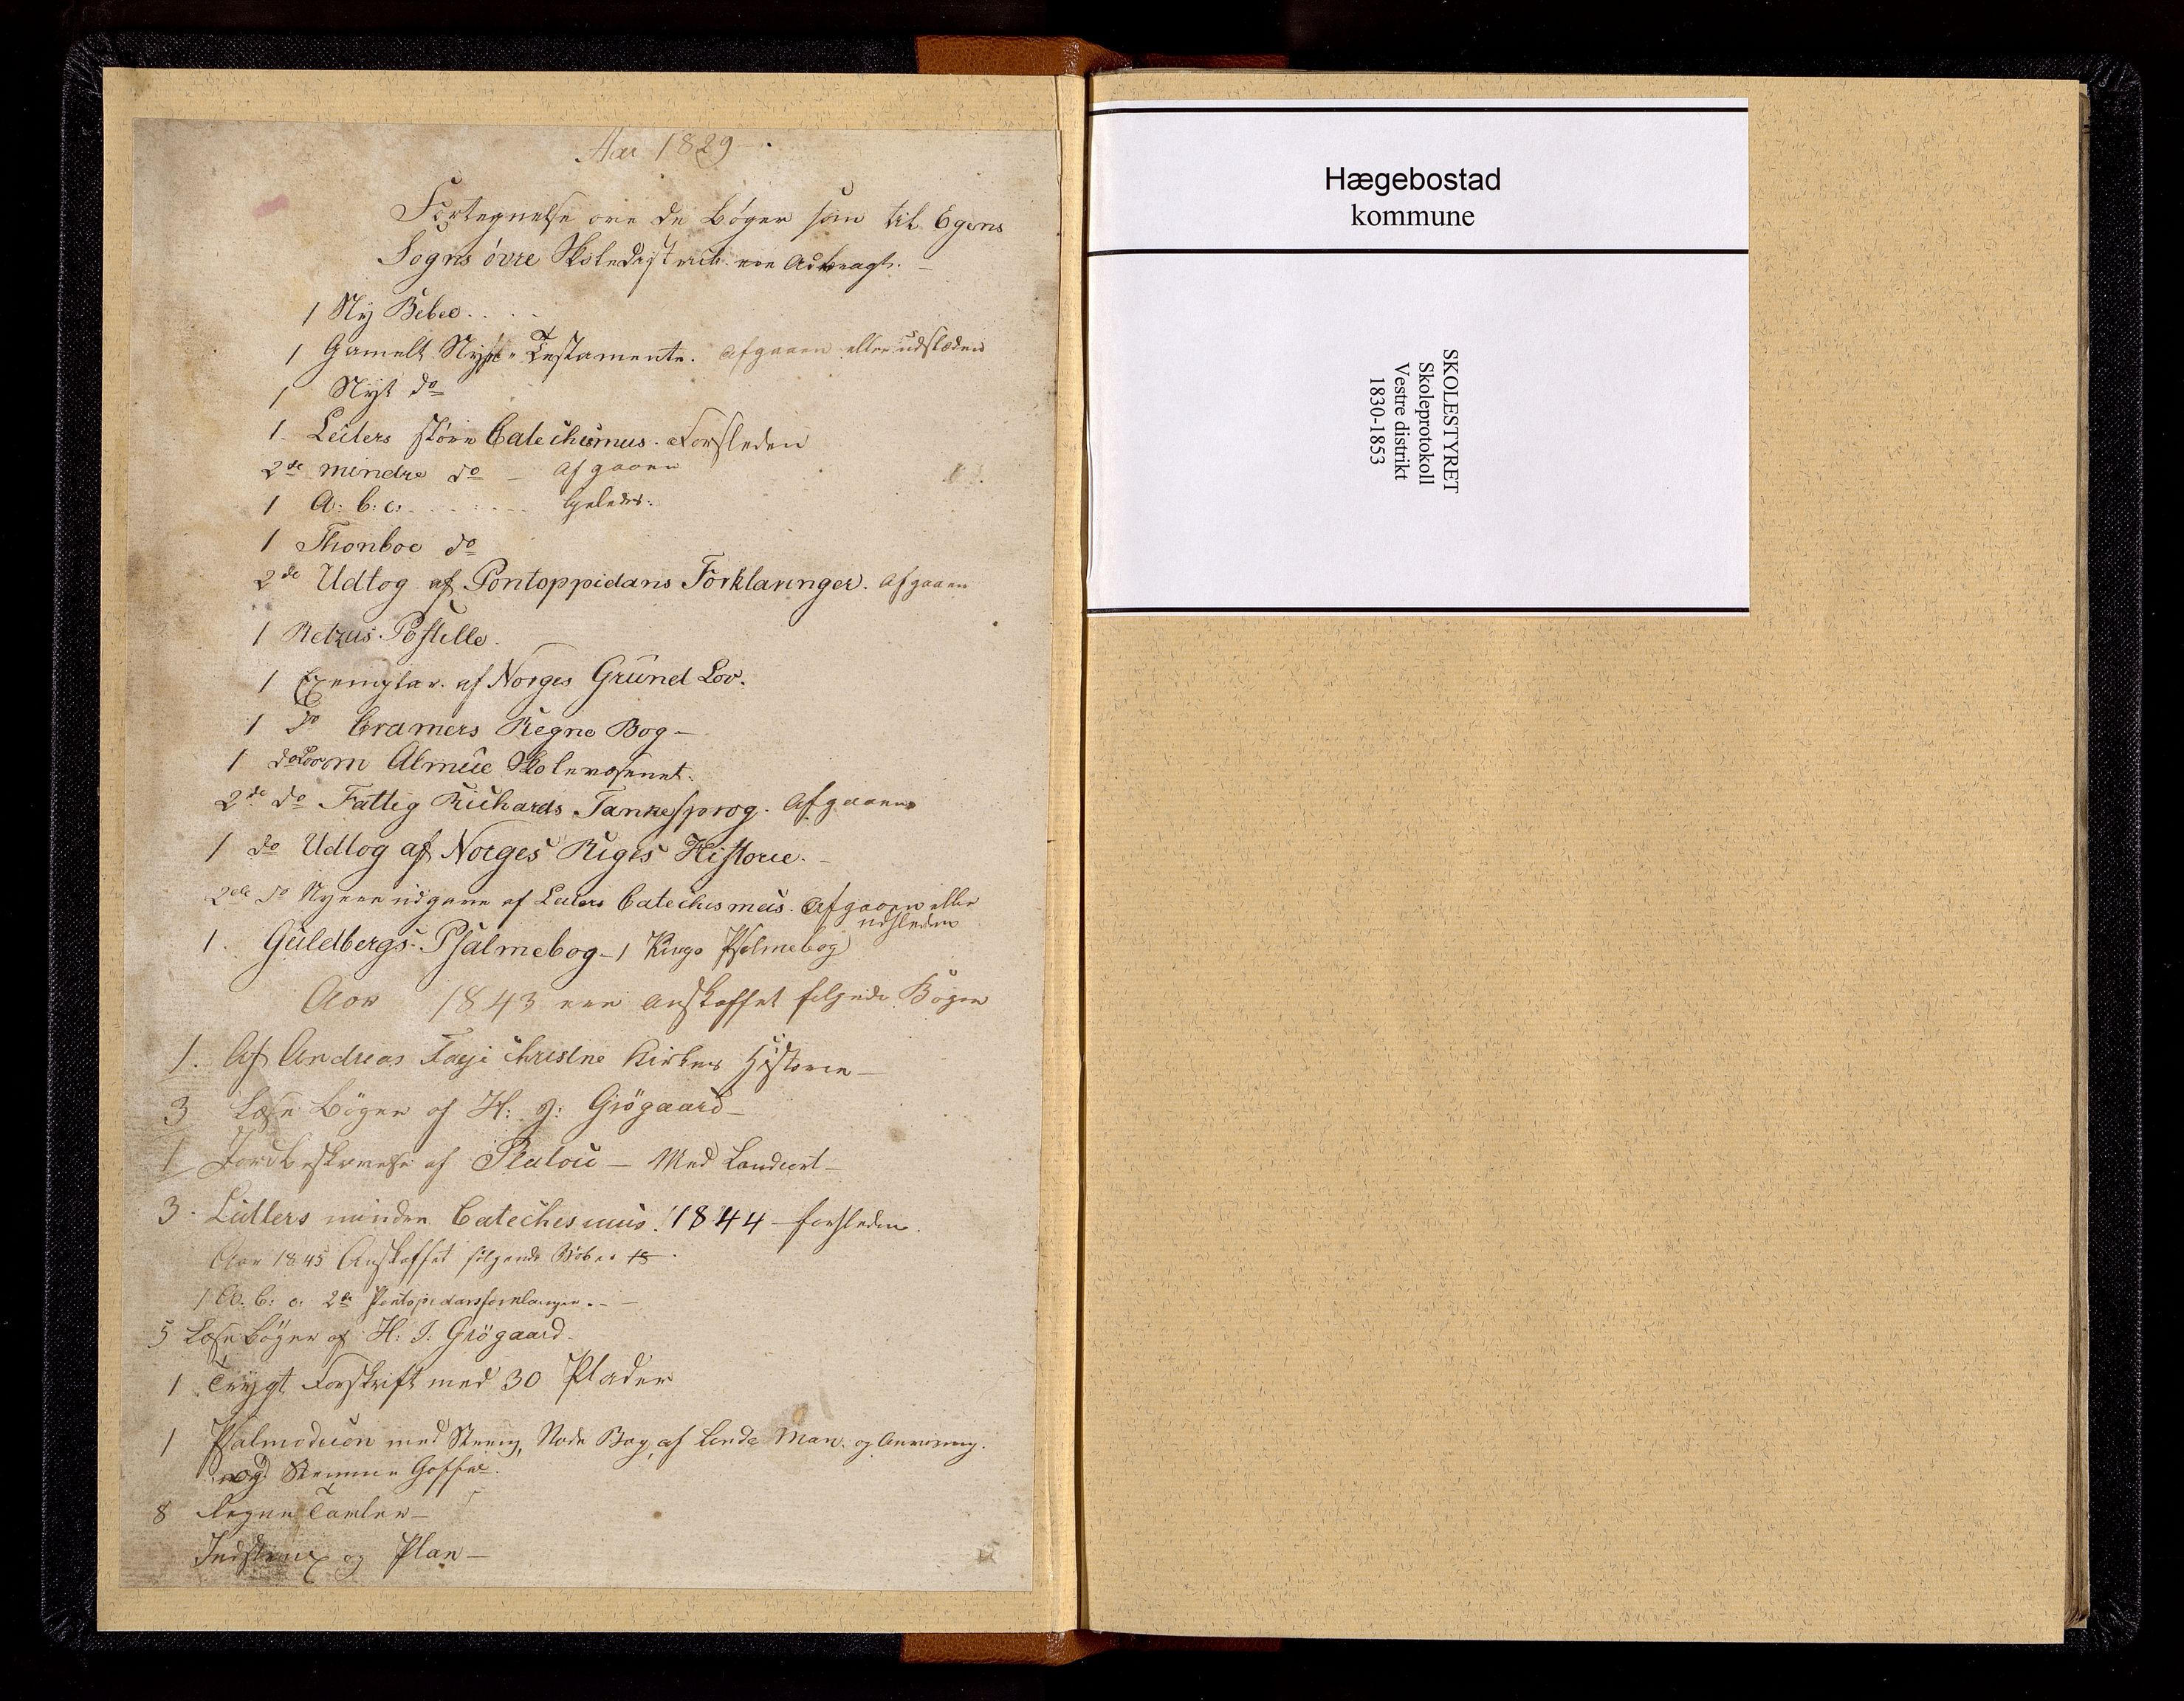 Aar 1829
Fortegnelse over de Bøger som til Egens
Sogns øvre Skoledistrict ere Adbragt.
1 Ny Bibel . . . .
1 Gamelt Nyt Testamente. Afgaaen eller udsleden
1 Nyt do
1. Luters større Catechismus. Forsleden
2de mindre do - Afgaaen
1 A: b: c. . . . . . . . ligeledes.
1 Thonboe do
2de Udtog af Pontoppidans Forklaringer. Afgaaen
1 Retzus Postille.
1 Exemplar af Norges Grund Lov.
1 do Cramers Regne Bog -
1 do Lov om Almue Skolevæsenet.
2de do Fattig Richards Tankesprog. Afgaaen
1 do Udtog af Norges Riges Historie. -
2de do Nyere udgave af Luters Catechismus. Afgaaen eller
udsleden
1. Guldbergs Psalmebog - 1 Kingo Psalmebog
Aar 1843 ere Anskaffet følgende Bøger
1. Af Andreas Faye Christne Kirkes Historie -
3 Læse Bøger af H: J: Grögaard -
1 Jordbeskrivelse af Platou - Med Landcort -
3. Lutters mindre Catechismus. 1844 forsleden.
Aar 1845 Anskaffet følgende Bøker 15.
1 Ab. b: c. 2de Pontopidans forklaringer. -
5 Læse bøger af H: J: Grögaard -
1 Trygt Forskrift med 30 Plader
1 Psalmodicon med Streng, Node Bog af Linde Man. og Anvisning.
og Stemme Gaffel.
8 Regne Tavler -
Indstrux og Plan -
Hægebostad
kommune
SKOLESTYRET
Skoleprotokoll
Vestre distrikt
1830-1853